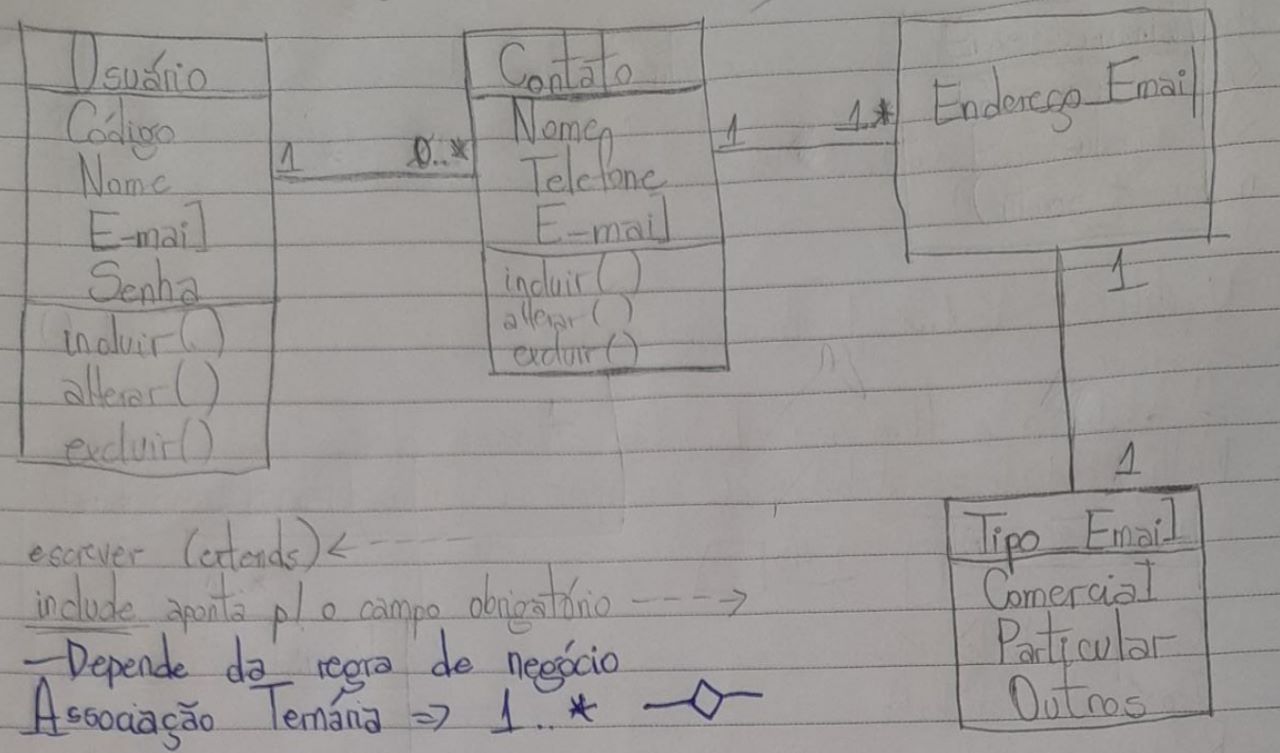 Usuário
Código
Nome
E-mail
Senha
incluir()
alterar()
excluir()
1 0..*
Contato
Nome
Telefone
E-mail
incluir()
alterar()
excluir()
1 1.*
Endereço Email
1
1
Tipo Email
Comercial
Particular
Outros
escrever (extends) <-----
include aponta p/ o campo obrigatório ---->
-Depende da regra de negócio
Associação Ternária => 1..*